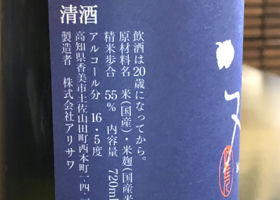 清酒
飲酒は20歳になってから。
原材料名 米(国産)・米麹(国産米
精米歩合 55% 内容量 720ml
アルコール分 16・5度
高知県香美市土佐山田町西本町一・四・一
製造者 株式会社アリサワ
文